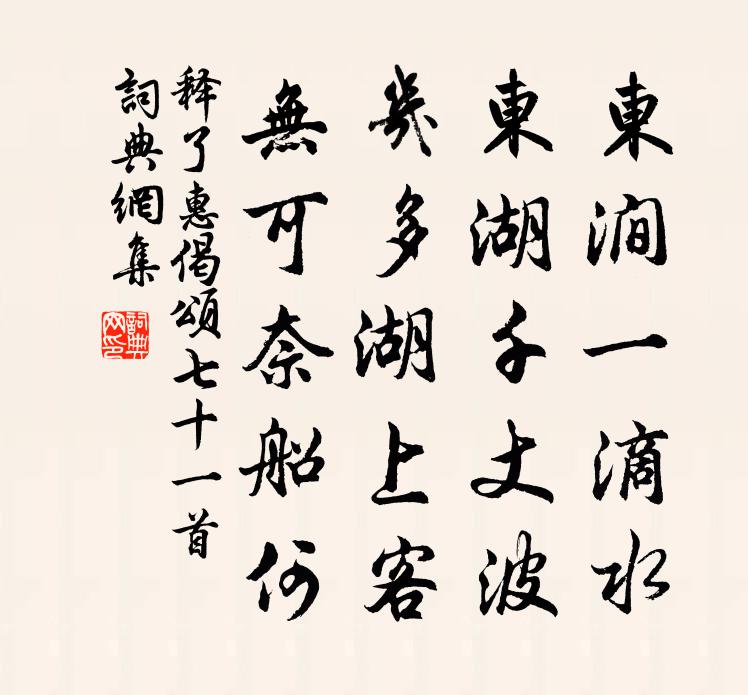 東澗一滴水
東湖千丈波
幾多湖上客
無可奈船何
释了惠偈頌七十一首
詞典網集
詞典
网印